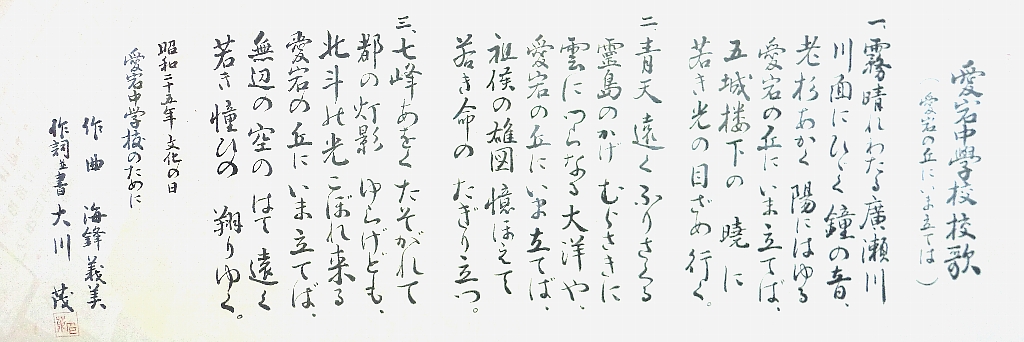 愛宕中學校校歌
(愛宕の丘にいま立てば)
一、霧晴れわたる廣瀬川
川面にひゞく鐘の音、
老杉あかく陽にはゆる
愛宕の丘にいま立てば、
五城楼下の 暁に
若き光の目ざめ行く。
二 青天 遠く ふりさくる
霊島のかげ むらさきに
雲につらなる大洋や、
愛宕の丘にいま立てば、
祖侯の雄図 憶ほえて
若き命の たぎり立つ。
三、七峰あをく たそがれて
都の灯影 ゆらげども、
北斗の光 こぼれ来る
愛宕の丘にいま立てば、
無辺の空の はて遠く
若き憧ひの 翔りゆく。
昭和二十五年 文化の日
愛宕中学校のために
作曲 海鋒義美
作詞並書 大川 茂